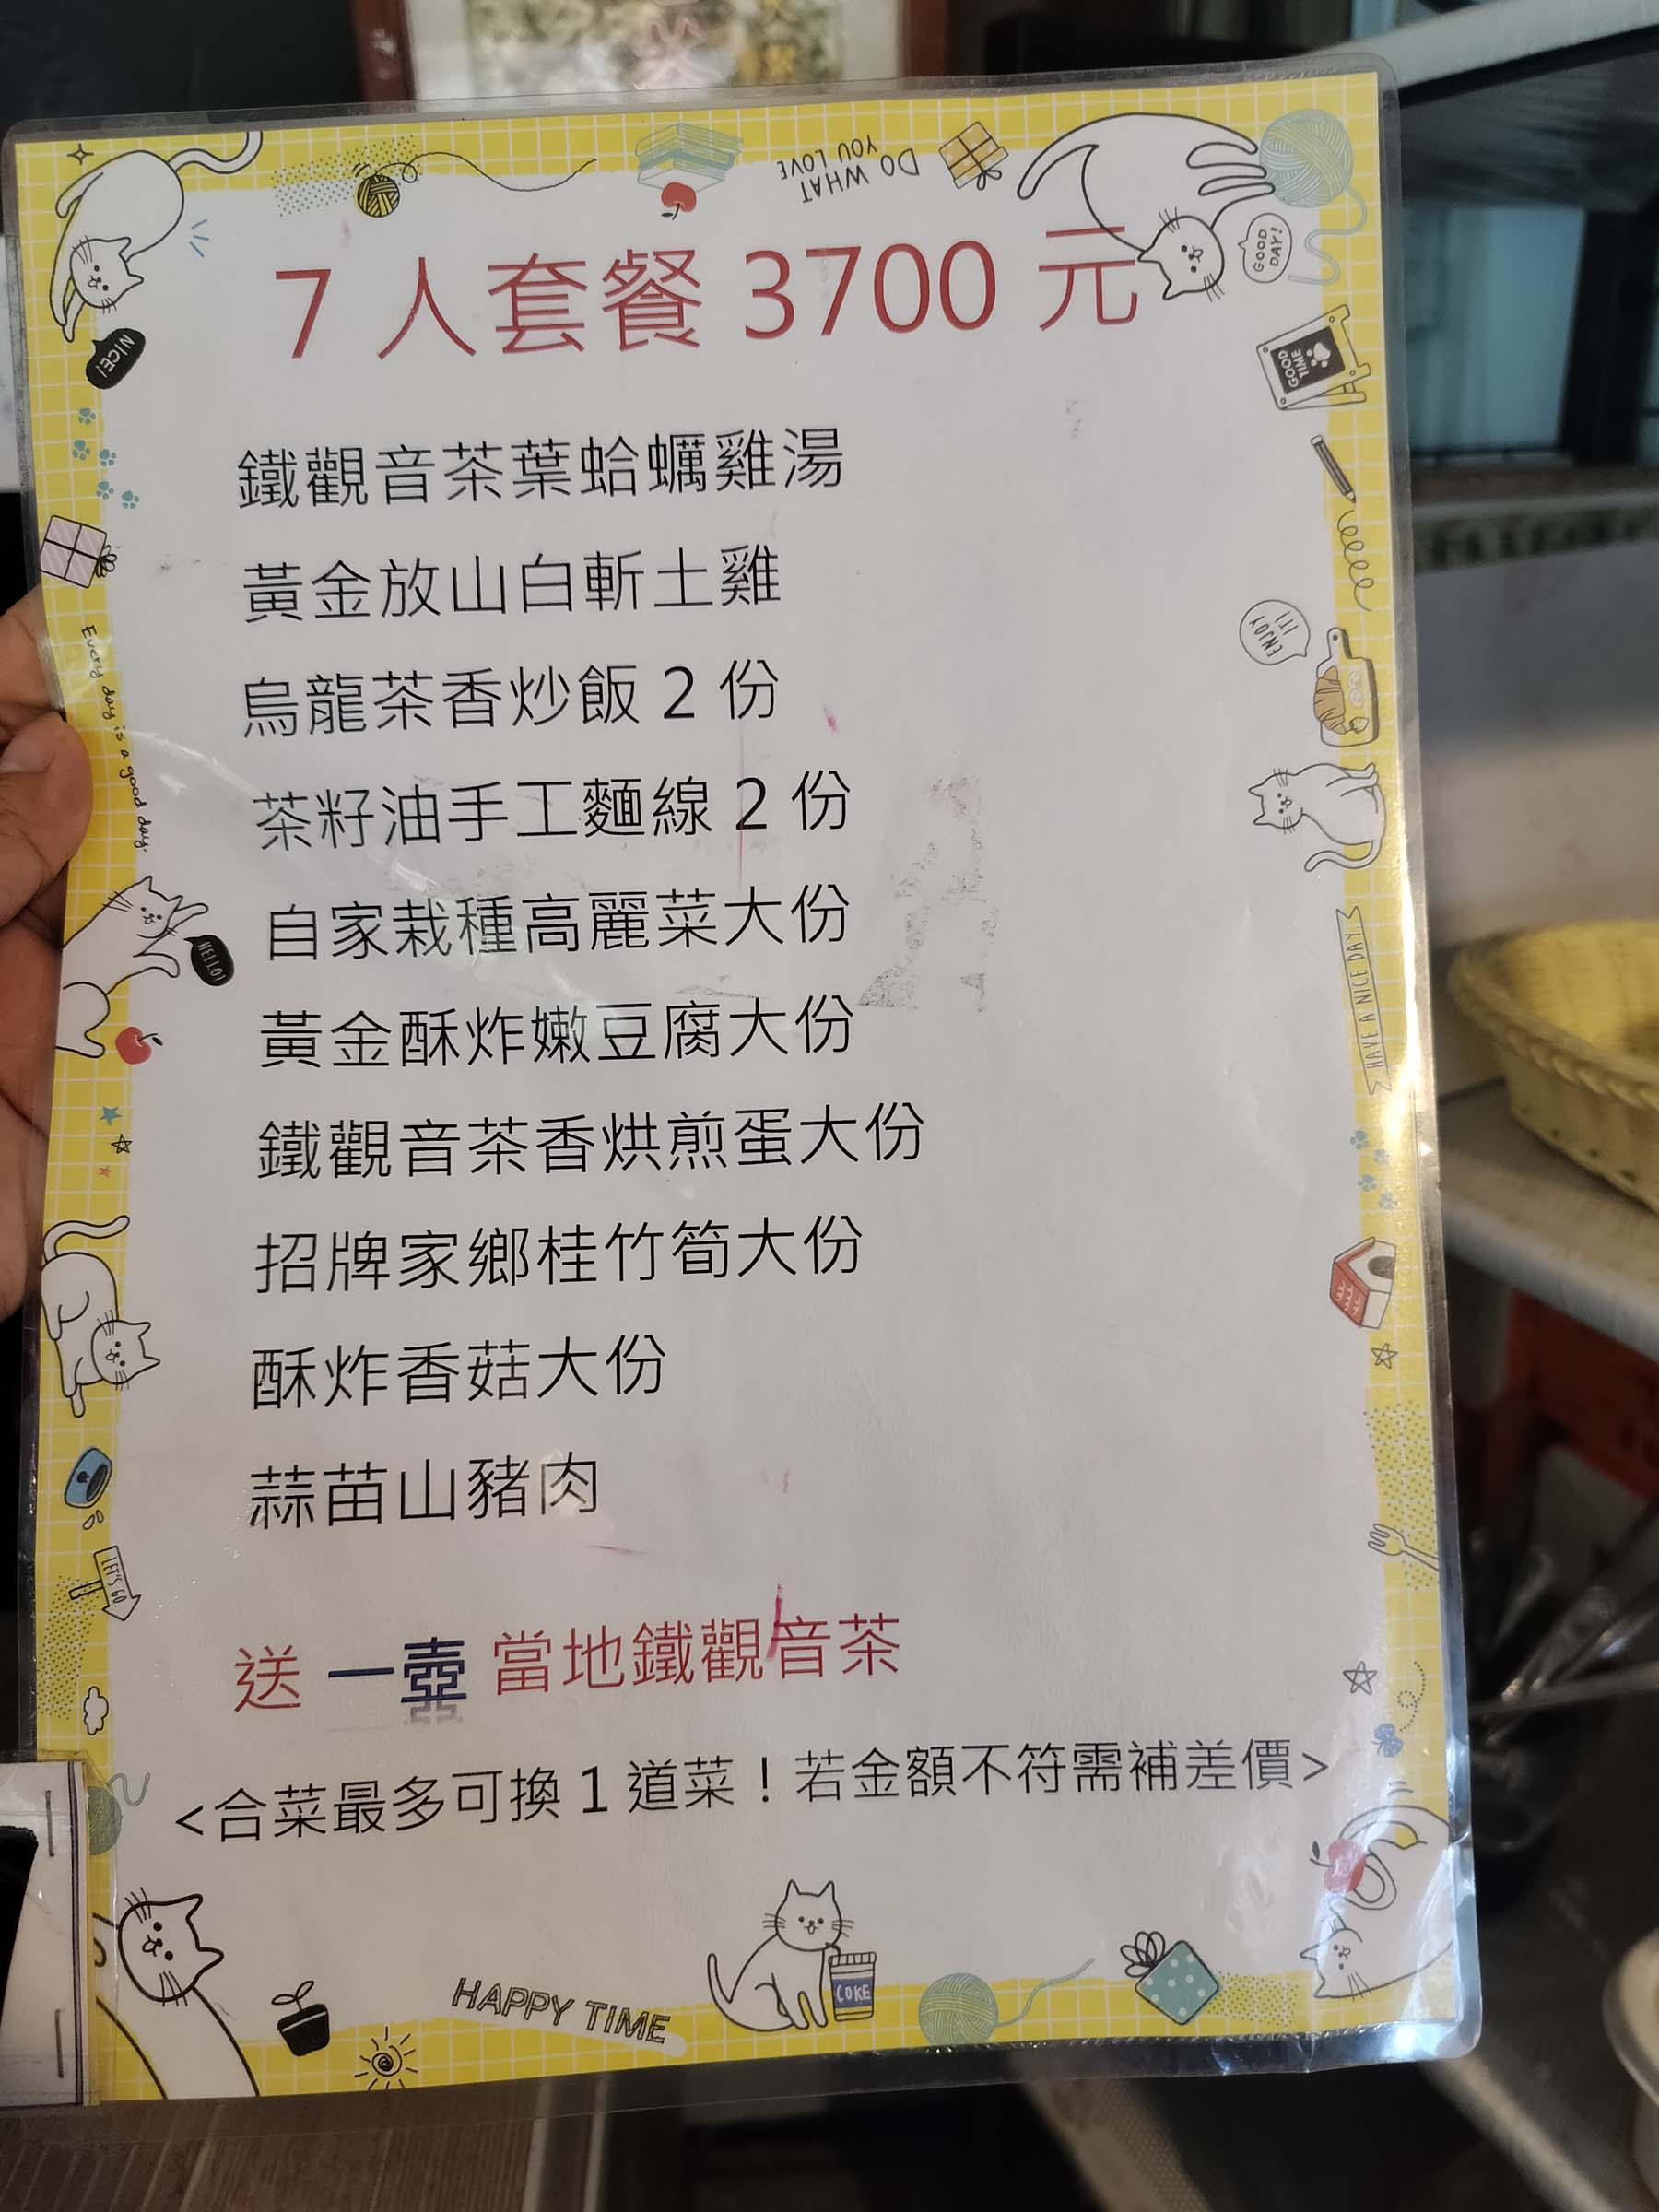 DO WHAT
YOU LOVE
GOOD
DAY!
NICE!
7 人套餐 3700 元
GOOD
TIME
鐵觀音茶葉蛤蠣雞湯
黃金放山白斬土雞
ENJOY
IT!
烏龍茶香炒飯 2 份
Every day is a good day.
茶籽油手工麵線 2 份
自家栽種高麗菜大份
HELLO!
HAVE A NICE DAY
黃金酥炸嫩豆腐大份
鐵觀音茶香烘煎蛋大份
招牌家鄉桂竹筍大份
酥炸香菇大份
蒜苗山豬肉
LET'S GO
送 一壺 當地鐵觀音茶
<合菜最多可換 1 道菜！若金額不符需補差價>
COKE
HAPPY TIME